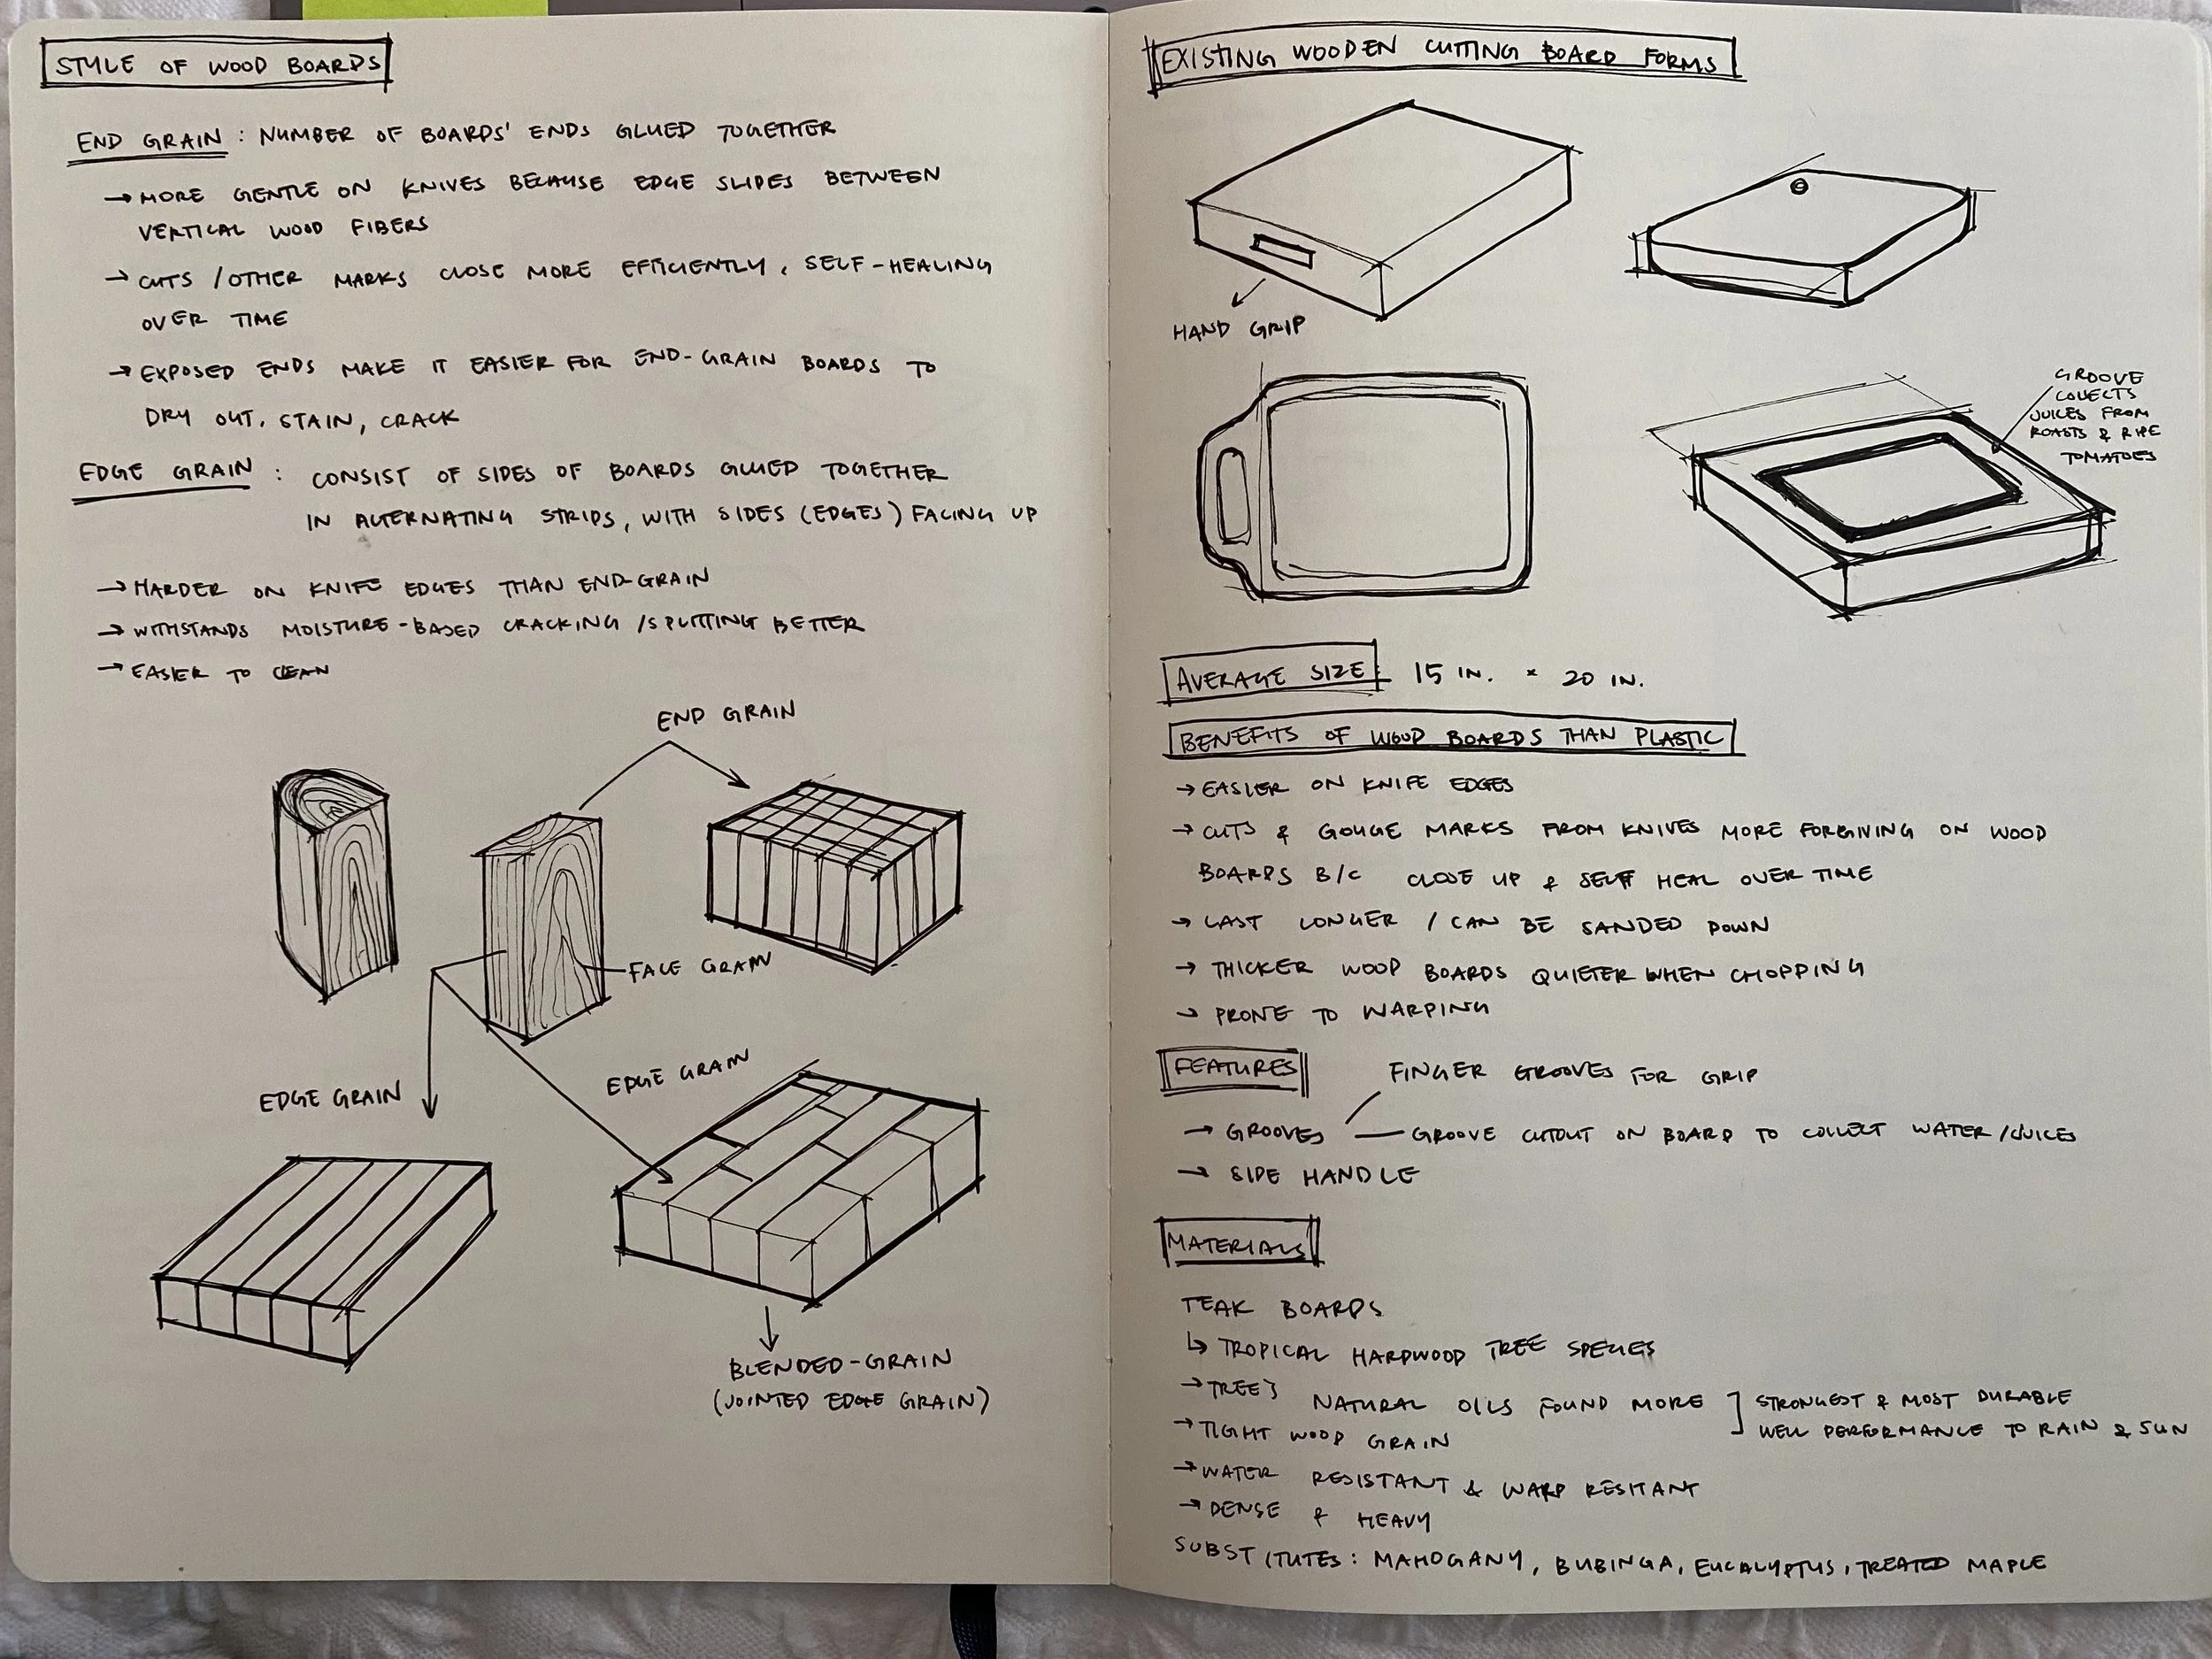 STYLE OF WOOD BOARDS
END GRAIN : NUMBER OF BOARDS' ENDS GLUED TOGETHER
→ MORE GENTLE ON KNIVES BECAUSE EDGE SLIPES BETWEEN
VERTICAL WOOD FIBERS
→ CUTS / OTHER MARKS CLOSE MORE EFFICIENTLY, SELF-HEALING
OVER TIME
→ EXPOSED ENDS MAKE IT EASIER FOR END-GRAIN BOARDS TO
DRY OUT, STAIN, CRACK
EDGE GRAIN : CONSIST OF SIDES OF BOARDS GLUED TOGETHER
IN ALTERNATING STRIPS, WITH SIDES (EDGES) FACING UP
→ HARDER ON KNIFE EDGES THAN END-GRAIN
→ WITHSTANDS MOISTURE-BASED CRACKING / SPLITTING BETTER
→ EASIER TO CLEAN
END GRAIN
FACE GRAIN
EDGE GRAIN
EDGE GRAIN
BLENDED-GRAIN
(JOINTED EDGE GRAIN)
EXISTING WOODEN CUTTING BOARD FORMS
HAND GRIP
GROOVE
COLLECTS
JUICES FROM
ROASTS & RIPE
TOMATOES
AVERAGE SIZE: 15 IN. × 20 IN.
BENEFITS OF WOOD BOARDS THAN PLASTIC
→ EASIER ON KNIFE EDGES
→ CUTS & GOUGE MARKS FROM KNIVES MORE FORGIVING ON WOOD
BOARDS B/C CLOSE UP & SELF HEAL OVER TIME
→ LAST LONGER / CAN BE SANDED DOWN
→ THICKER WOOD BOARDS QUIETER WHEN CHOPPING
→ PRONE TO WARPING
FEATURES
FINGER GROOVES FOR GRIP
→ GROOVES — GROOVE CUTOUT ON BOARD TO COLLECT WATER / JUICES
→ SIDE HANDLE
MATERIALS
TEAK BOARDS
↳ TROPICAL HARDWOOD TREE SPECIES
→ TREE'S NATURAL OILS FOUND MORE ] STRONGEST & MOST DURABLE
→ TIGHT WOOD GRAIN WELL PERFORMANCE TO RAIN & SUN
→ WATER RESISTANT & WARP RESITANT
→ DENSE & HEAVY
SUBSTITUTES: MAHOGANY, BUBINGA, EUCALYPTUS, TREATED MAPLE